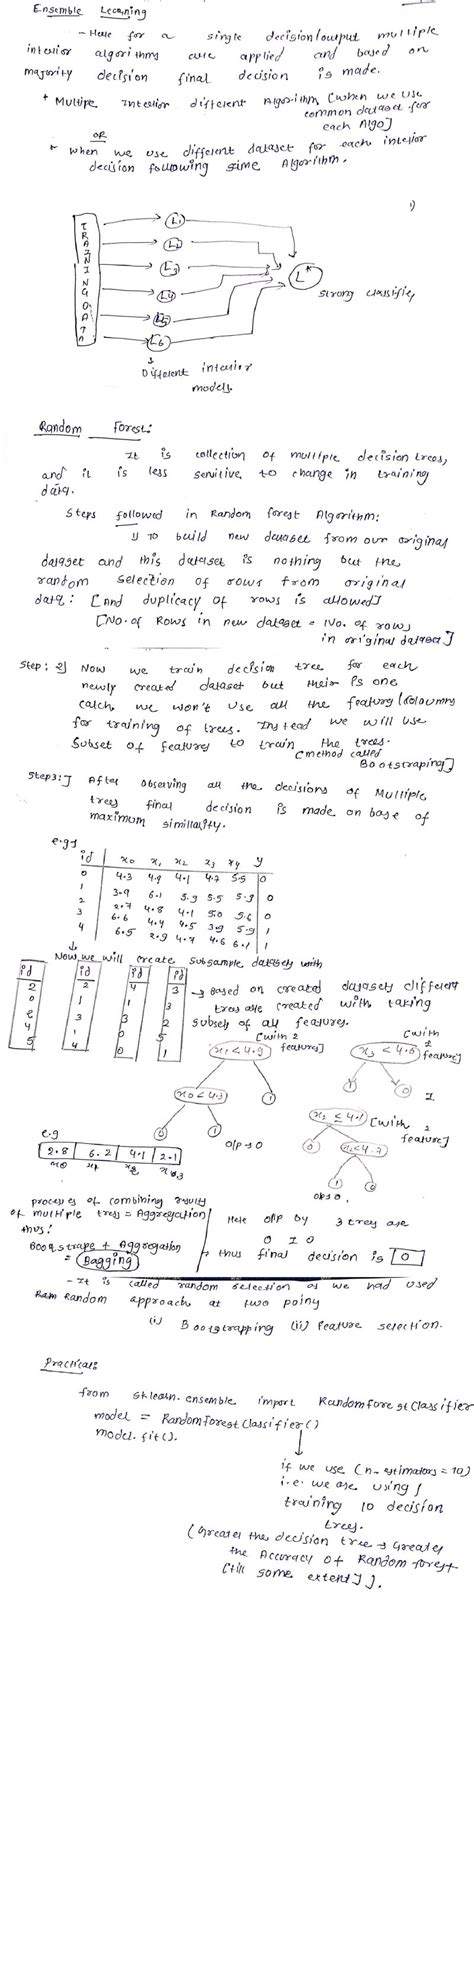 Ensemble Learning
- Here for a single decision/output multiple
interior algorithms are applied and based on
majority decision final decision is made.
+ Multiple interior different Algorithm [when we use
common dataset for
each Algo]
OR
+ when we use different dataset for each interior
decision following same Algorithm.
1)
TRAINING DATA
L1
L2
L3
L4
L5
L6
L*
strong classifier
Different interior
models.
Random Forest:
It is collection of multiple decision trees,
and it is less sensitive to change in training
data.
Steps followed in Random forest Algorithm:
1) To build new dataset from our original
dataset and this dataset is nothing but the
random selection of rows from original
data: [And duplicacy of rows is allowed]
[No. of Rows in new dataset = No. of rows
in original dataset]
Step: 2] Now we train decision tree for each
newly created dataset but their is one
catch, we won't use all the feature/coloumns
for training of trees. Instead we will use
Subset of features to train the trees.
[method called
Bootstraping]
Step3:] After observing all the decisions of Multiple
trees final decision is made on base of
maximum simillarity.
e.g→
id x0 x1 x2 x3 x4 y
0 4.3 4.9 4.1 4.7 5.5 0
1 3.9 6.1 5.9 5.5 5.9 0
2 2.7 4.8 4.1 5.0 5.6 0
3 6.6 4.4 4.5 3.9 5.9 1
4 6.5 2.9 4.7 4.6 6.1 1
Now we will create subsample datasets with
id id id id
2 2 4 3
0 1 1 3
2 3 3 2
4 1 0 5
5 4 0 1
→ Based on created datasets different
trees are created with taking
subsets of all features.
[with 2
features]
x1 < 4.9
x0 < 4.3
0
1
1
O/p → 0
[with
features]
x3 < 4.6
1
0
1
x2 ≤ 4.1 [with 2
feature]
0
x3 < 4.7
1
0
O/p → 0,
e.g
2.8 6.2 4.1 2.1
x0 x1 x2 x3
processes of combining results
of multiple trees = Aggregation
thus:
Bootstrape + Aggregation
= Bagging
Here O/P by 3 trees are
0 1 0
thus final decision is 0
- It is called random selection as we had used
Ram Random approach at two point
(i) Bootstrapping (ii) Feature selection.
Practical:
from sklearn.ensemble import RandomForestClassifier
model = RandomForestClassifier()
model.fit().
if we use (n_estimators = 10)
i.e. we are using /
training 10 decision
trees.
(Greater the decision tree → Greater
the Accuracy of Random forest
[till some extent]).